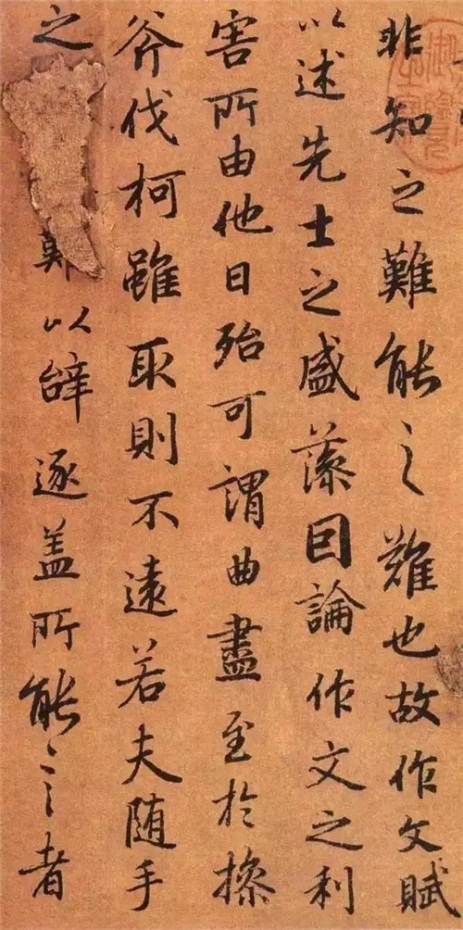 非知之難能之難也故作文賦
以述先士之盛藻因論作文之利
害所由他日殆可謂曲盡至於操
斧伐柯雖取則不遠若夫随手
之難以辝逐盖所能之者